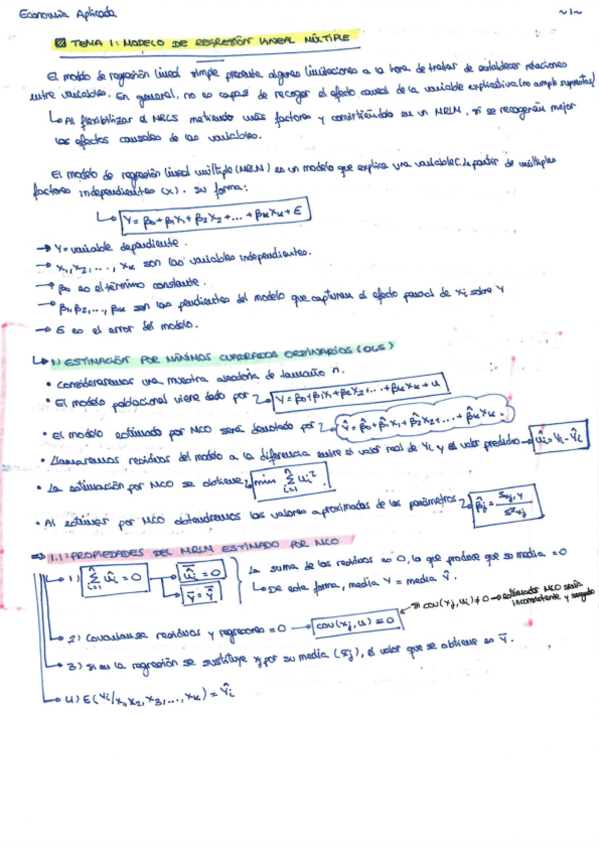 Economía Aplicada
~1~
TEMA 1: MODELO DE REGRESIÓN LINEAL MÚLTIPLE
El modelo de regresión lineal simple presenta algunas limitaciones a la hora de tratar de establecer relaciones
entre variables. En general, no es capaz de recoger el efecto causal de la variable explicativa (no cumple supuestos)
↳ Al flexibilizar el MRLS metiendo más factores y convirtiéndolo en un MRLM, sí se recogerán mejor
los efectos causales de las variables.
El modelo de regresión lineal múltiple (MRLM) es un modelo que explica una variable a partir de múltiples
factores independientes (x). Su forma:
Y = β0 + β1X1 + β2X2 + ... + βkXk + ε
→ Y = variable dependiente.
→ X1, X2, ..., Xk son las variables independientes.
→ β0 es el término constante.
→ β1, β2, ..., βk son las pendientes del modelo que capturan el efecto parcial de Xj sobre Y
→ ε es el error del modelo.
↳ 1) ESTIMACIÓN POR MÍNIMOS CUADRADOS ORDINARIOS (OLS)
• Consideraremos una muestra aleatoria de tamaño n.
• El modelo poblacional viene dado por Y = β0 + β1X1 + β2X2 + ... + βkXk + u
• El modelo estimado por MCO será denotado por Ŷ = β̂0 + β̂1X1 + β̂2X2 + ... + β̂kXk.
• Llamaremos residuos del modelo a la diferencia entre el valor real de Yi y el valor predicho → ûi = Yi - Ŷi
• La estimación por MCO se obtiene min Σ ui²
• Al estimar por MCO obtendremos los valores aproximados de los parámetros β̂j = Sxj,y / S²xj
⇒ 1.1) PROPIEDADES DEL MRLM ESTIMADO POR MCO
→ 1) Σ ûi = 0 → ûi = 0 Ȳ = Ŷ La suma de los residuos es 0, lo que produce que su media = 0
↳ De esta forma, media Y = media Ŷ.
Si cov(xj, ui) ≠ 0 → estimador MCO sería
inconsistente y sesgado
→ 2) Covarianza residuos y regresores = 0 → cov(xj, u) = 0
→ 3) Si en la regresión se sustituye xj por su media (x̄j), el valor que se obtiene es Ȳ.
→ 4) E(Yi/X1, X2, X3, ..., Xk) = Ŷi